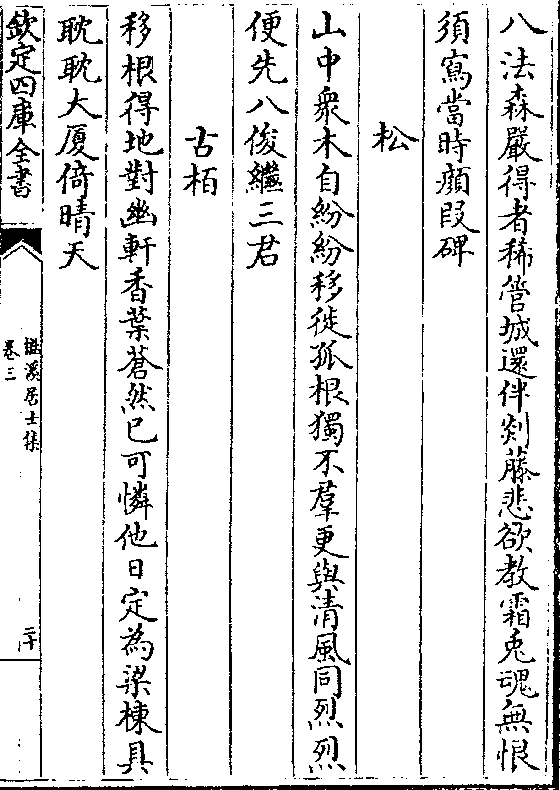 八法森嚴得者稀管城還伴剡藤悲欲教霜兎魂無恨
須寫當時顔叚碑
松
山中衆木自紛紛移徙孤根獨不羣更與清風同烈烈
便先八俊繼三君
古栢
移根得地對幽軒香葉蒼然已可憐他日定為梁棟具
耽耽大厦倚晴天
欽定四庫全書
溪居士集
卷三
二十